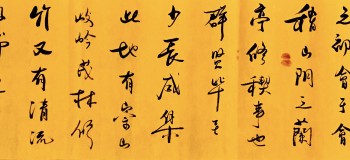 之初會于會
稽山陰之蘭
亭修禊事也
群賢畢至
少長咸集
此地有崇山
峻岭茂林修
竹又有清流